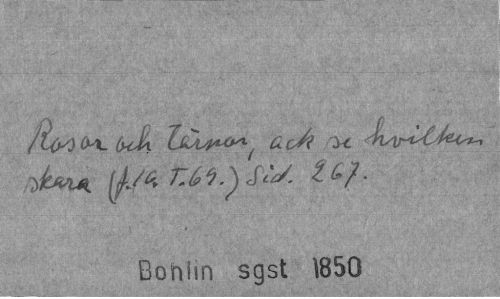 Rosor och Tärnor, ack se hvilken
skara (f.10. T.69.) Sid. 267.
Bohlin sgst 1850